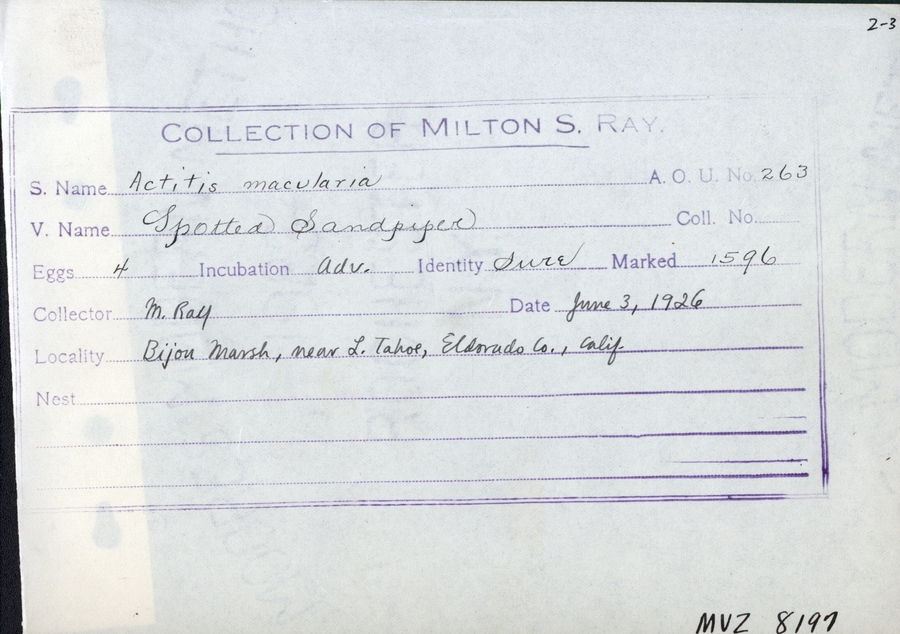 2-3
COLLECTION OF MILTON S. RAY.
S. Name Actitis macularia A. O. U. No. 263
V. Name Spotted Sandpiper Coll. No.
Eggs 4 Incubation Adv. Identity Sure Marked 1596
Collector M. Ray Date June 3, 1926
Locality Bijou Marsh, near L. Tahoe, Eldorado Co., Calif
Nest
MVZ 8197